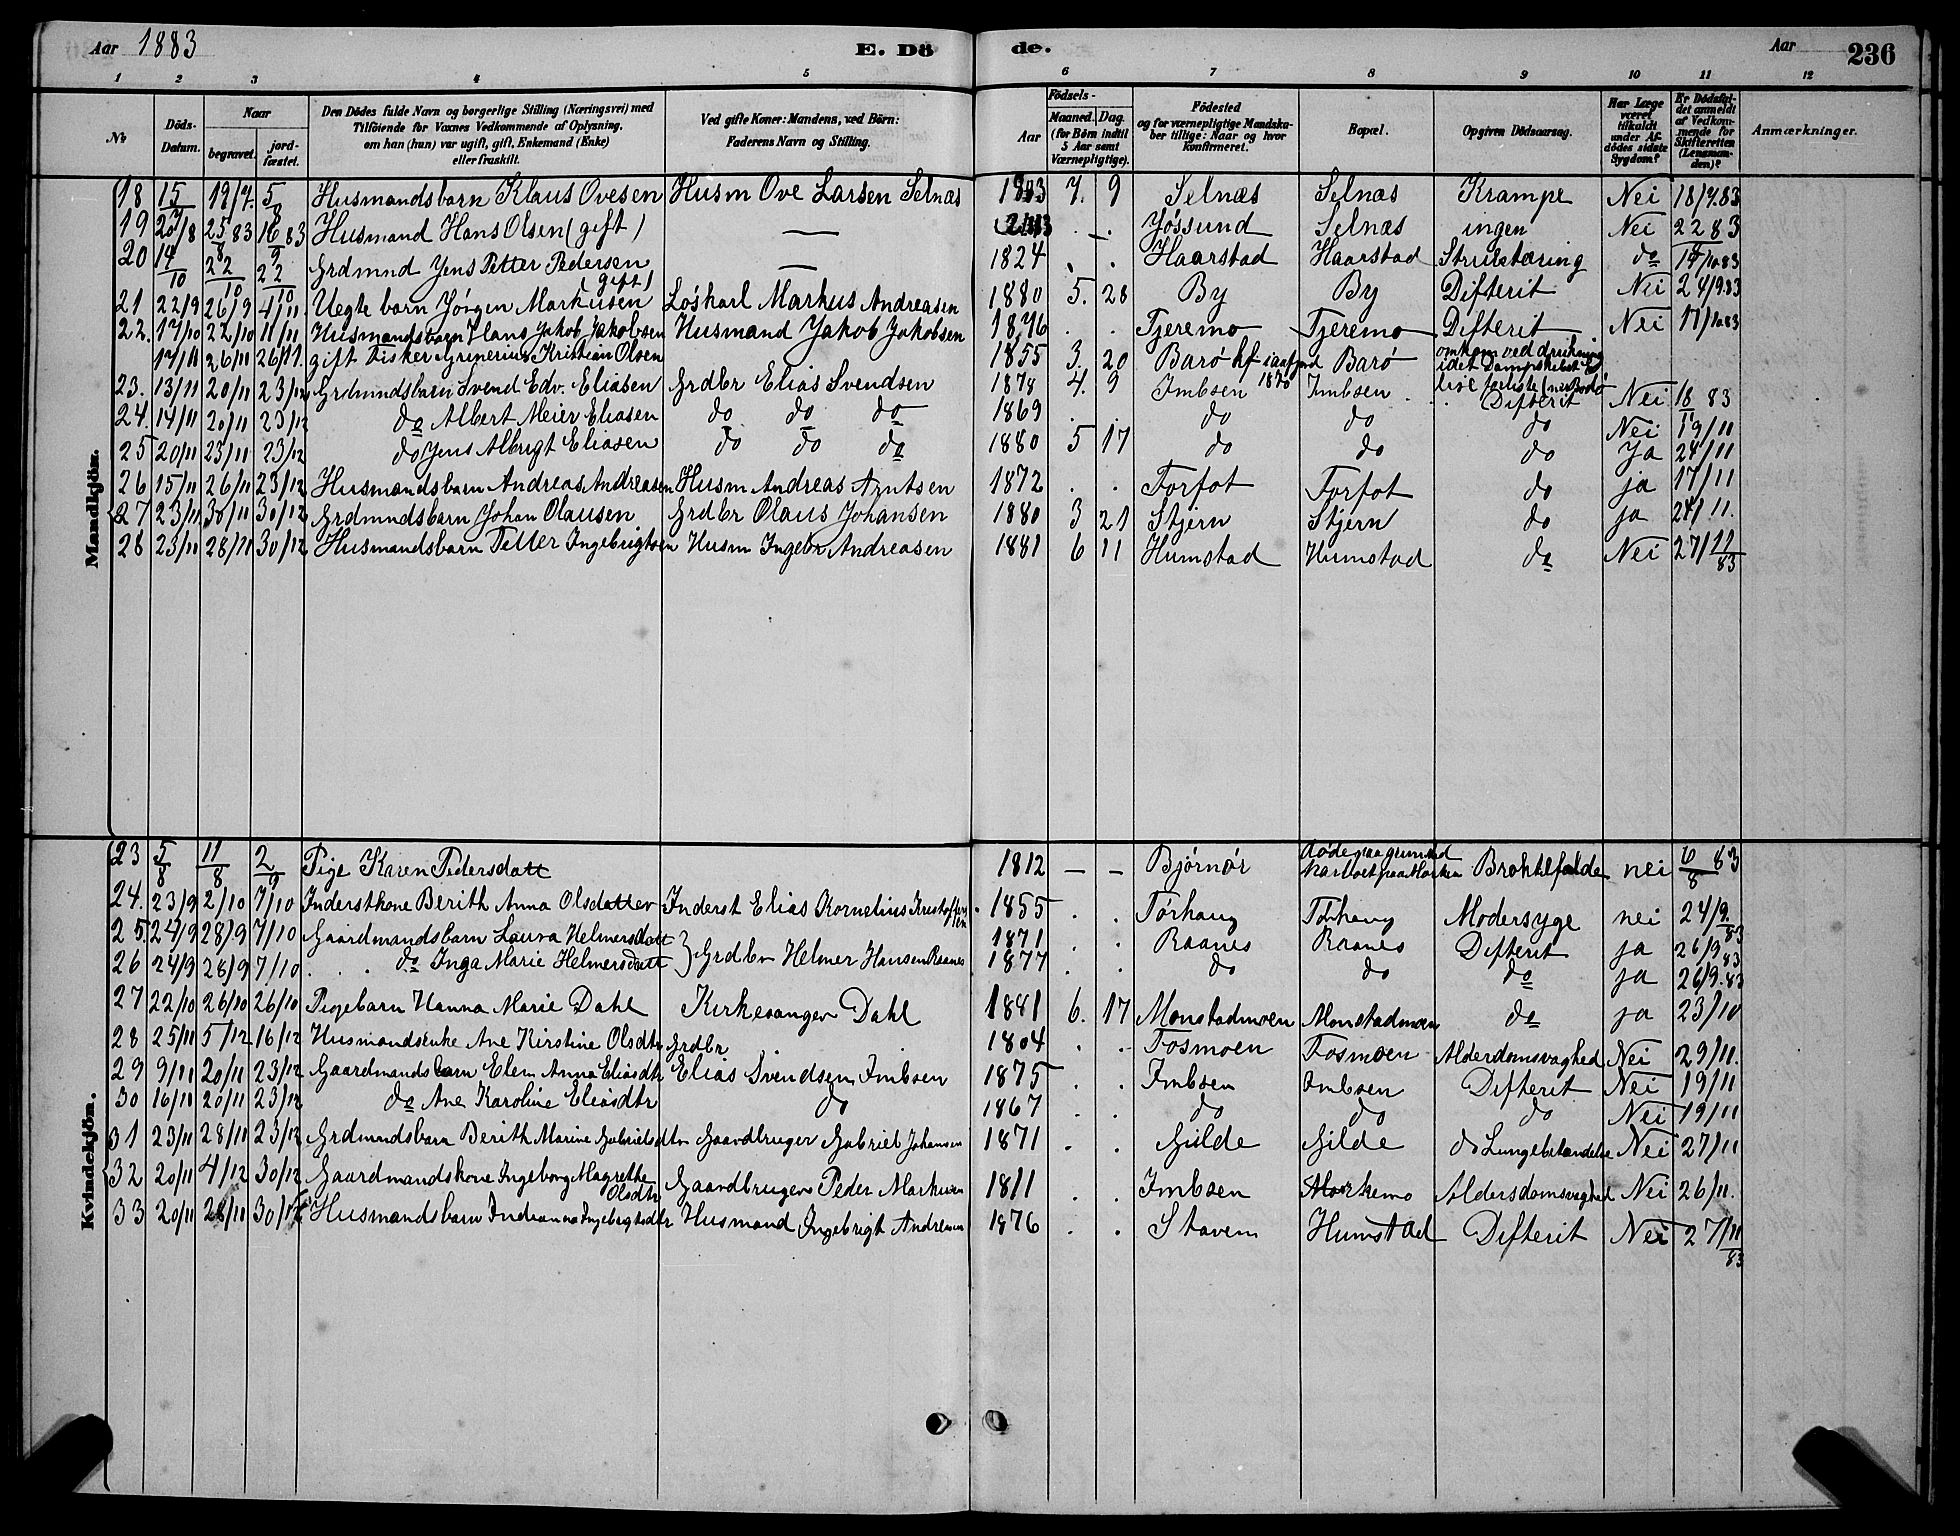 Aar 1883 E. Dö de. Aar 236
1 2 3 4 5 6 7 8 9 10 11 12
No
Döds-Datum.
Naar
begravet.
jord-fæstet.
Den Dödes fulde Navn og borgerlige Stilling (Næringsvei) med
Tilföiende for Voxnes Vedkommende af Oplysning,
om han (hun) var ugift, gift, Enkemand (Enke)
eller fraskilt.
Ved gifte Koner: Mandens, ved Börn:
Faderens Navn og Stilling.
Födsels-
Aar
Maaned. Dag.
(for Börn indtil
5 Aar samt
Værnepligtige).
Födested
og for værnepligtige Mandska-
ber tillige: Naar og hvor
konfirmeret.
Bopæl.
Opgiven Dödsaarsag.
Har Læge
været
tilkaldt
under Af-
dödes sidste
Sygdom?
Er Dödsfal-
det anmeldt
af Vedkom-
mende for
Skifteretten
(Lensman-
den)?
Anmærkninger.
Mandkjön.
18 15/7 19/7 5/8 Husmandsbarn Klaus Ovesen Husm Ove Larsen Selnæs 7. 9 Selnæs Selnæs Krampe Nei 18/7.83
19 20/8 25/8 83 16/9 83 Husmand Hans Olsen (gift) — . . Jøssund Selnæs ingen Nei 22 83
20 14/10 22/10 22/10 Grdmnd Jens Petter Pedersen (gift) — 1824 . . Haarstad Haarstad Strubetæring do 17/10 83
21 22/9 26/9 4/11 Uegte barn Jørgen Markusen Løskarl Markus Andreasen 1880 5. 28 By By Difterit Nei 24/9 83
22. 17/10 22/10 11/11 Husmandsbarn Hans Jakob Jakobsen Husmand Jakob Jakobsen 1876 . . Tjeremo Tjeremo Difterit Nei 17/10 83
17/11 26/11 26/11. gift fisker Grinerius Kristian Olsen 1855 3. 20 Barø kf i aafjord 1870 Barø omkom ved drukning idet Dampskibet
23. 13/11 20/11 23/12 Grdmndsbarn Svend Edv. Eliasen Grdbr Elias Svendsen 1878 4. 9 Imbsen Imbsen . . Difterit Nei 18 83
24. 14/11 20/11 23/12 do Albert Meier Eliasen do do do 1869 . do do do Nei 19/11
25 20/11 23/11 23/12 do Jens Albrigt Eliasen do do do 1880 5 17 do do do Ja 24/11
26 15/11 26/11 23/12 Husmandsbarn Andreas Andreasen Husm Andreas Arntsen 1872 . . Forfot Forfot do ja 17/11
27 23/11 30/11 30/12 Grdmndsbarn Johan Olausen Grdbr Olaus Johansen 1880 3 21 Stjern Stjern do ja 24/11.
28 23/11 28/11 30/12 Husmandsbarn Petter Ingebrigtsen Husm Ingebr Andreasen 1881 6 11 Humstad Humstad do Nei 27/11 83
Kvindekjön.
23 5/8 11/8 2/9 Pige Karen Pedersdatt 1812 — — Bjørnør Brøktilfælde nei 6/8 83
24. 23/9 2/10 7/10 Inderstkone Berith Anna Olsdatter Inderst Elias Kornelius Kristoffersen 1855 . . Tørhaug Tørhaug Modersyge nei 24/9. 83
25. 24/9 28/9 7/10 Gaardmandsbarn Laura Helmersdatt } Grdbr Helmer Hansen Raanes 1871 . . Raanes Raanes Difterit ja 26/9 83
26 24/9 28/9 7/10 . . do Inga Marie Helmersdatt 1877 . . do do do ja 26/9. 83
27 22/10 26/10 26/10 Pigebarn Hanna Marie Dahl Kirkesanger Dahl 1881 6. 17 Monstadmoen Monstadmoen do ja 23/10
28 25/11 5/12 16/12 Husmandsenke Ane Kirstine Olsdtr Grdbr 1804 . . Fosmoen Fosmoen Alderdomsvaghed Nei 29/11.
29 9/11 20/11 23/12 Gaardmandsbarn Elen Anna Eliasdtr Elias Svendsen Imbsen 1875 . . Imbsen Imbsen Difterit Nei 19/11
30 16/11 20/11 23/12 do Ane Karoline Eliasdtr do 1867 . . do do do Nei 19/11
31 23/11 28/11 23/12 Grdmandsbarn Berith Marine Gabrielsdtr Gaardbruger Gabriel Johansen 1871 . . Gilde Gilde do Lungebetændelse Nei 27/11
32 20/11 4/12 30/12 Gaardmandskone Ingeborg Magrethe Olsdtr Gaardbruger Peder Markusen 1811 . . Imbsen Markemo Aldersdomsvaghed Nei 26/11.
33 20/11 28/11 30/12 Husmandsbarn Indianna Ingebrigtsdtr Husmand Ingebrigt Andreasen 1876 . . Staven Humstad Difterit Nei 27/11 83